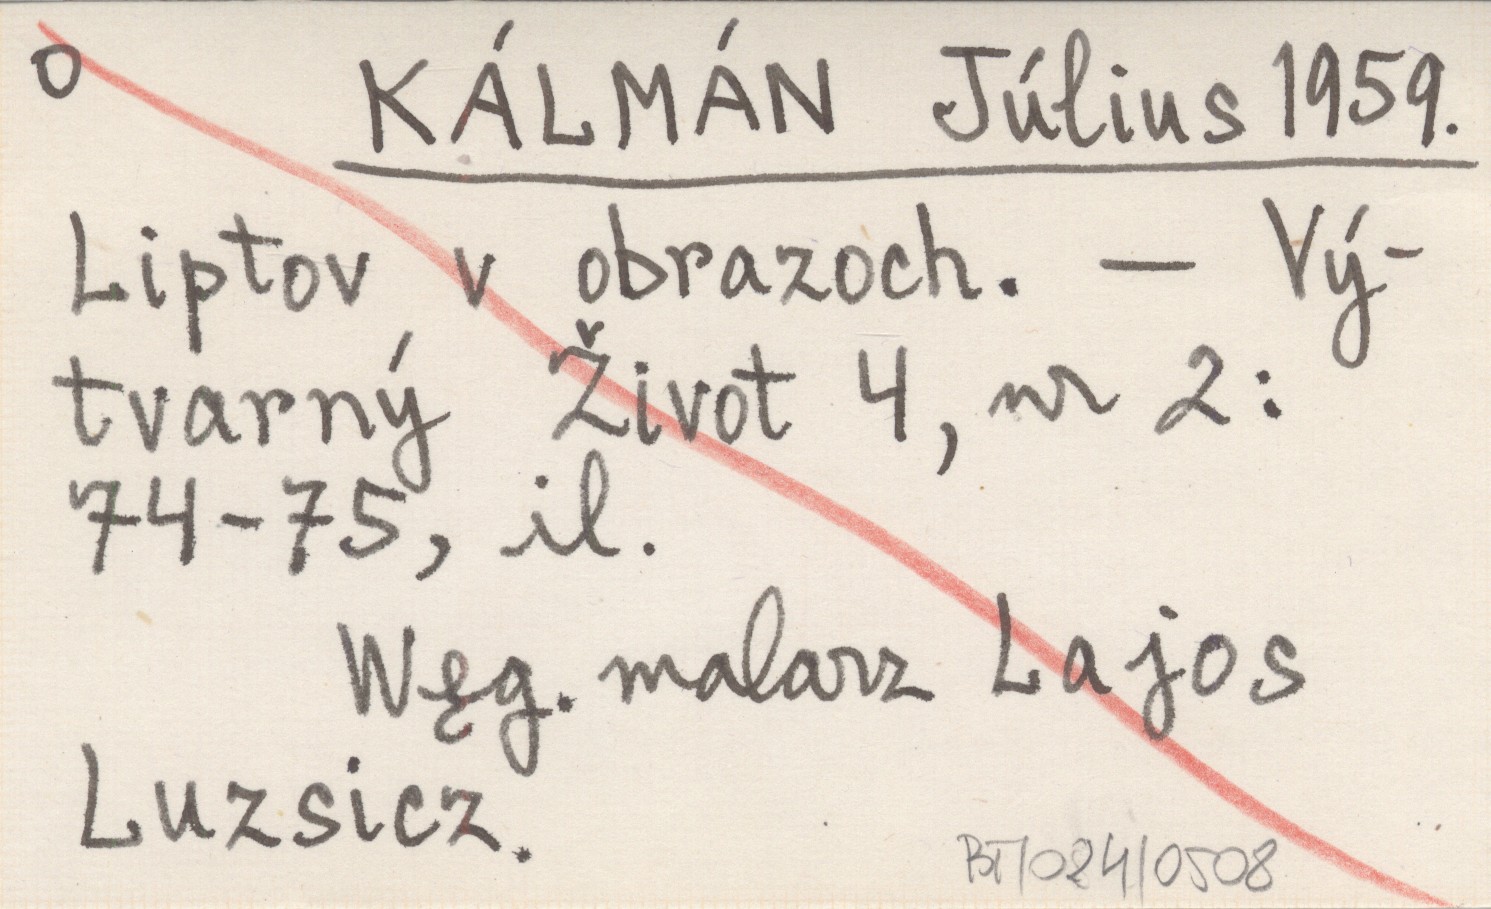 o
KÁLMÁN Július 1959.
Liptov v obrazoch. — Vý-
tvarný Život 4, nr 2:
74-75, il.
Węg. malarz Lajos
Luzsicz.
BT/024/0508